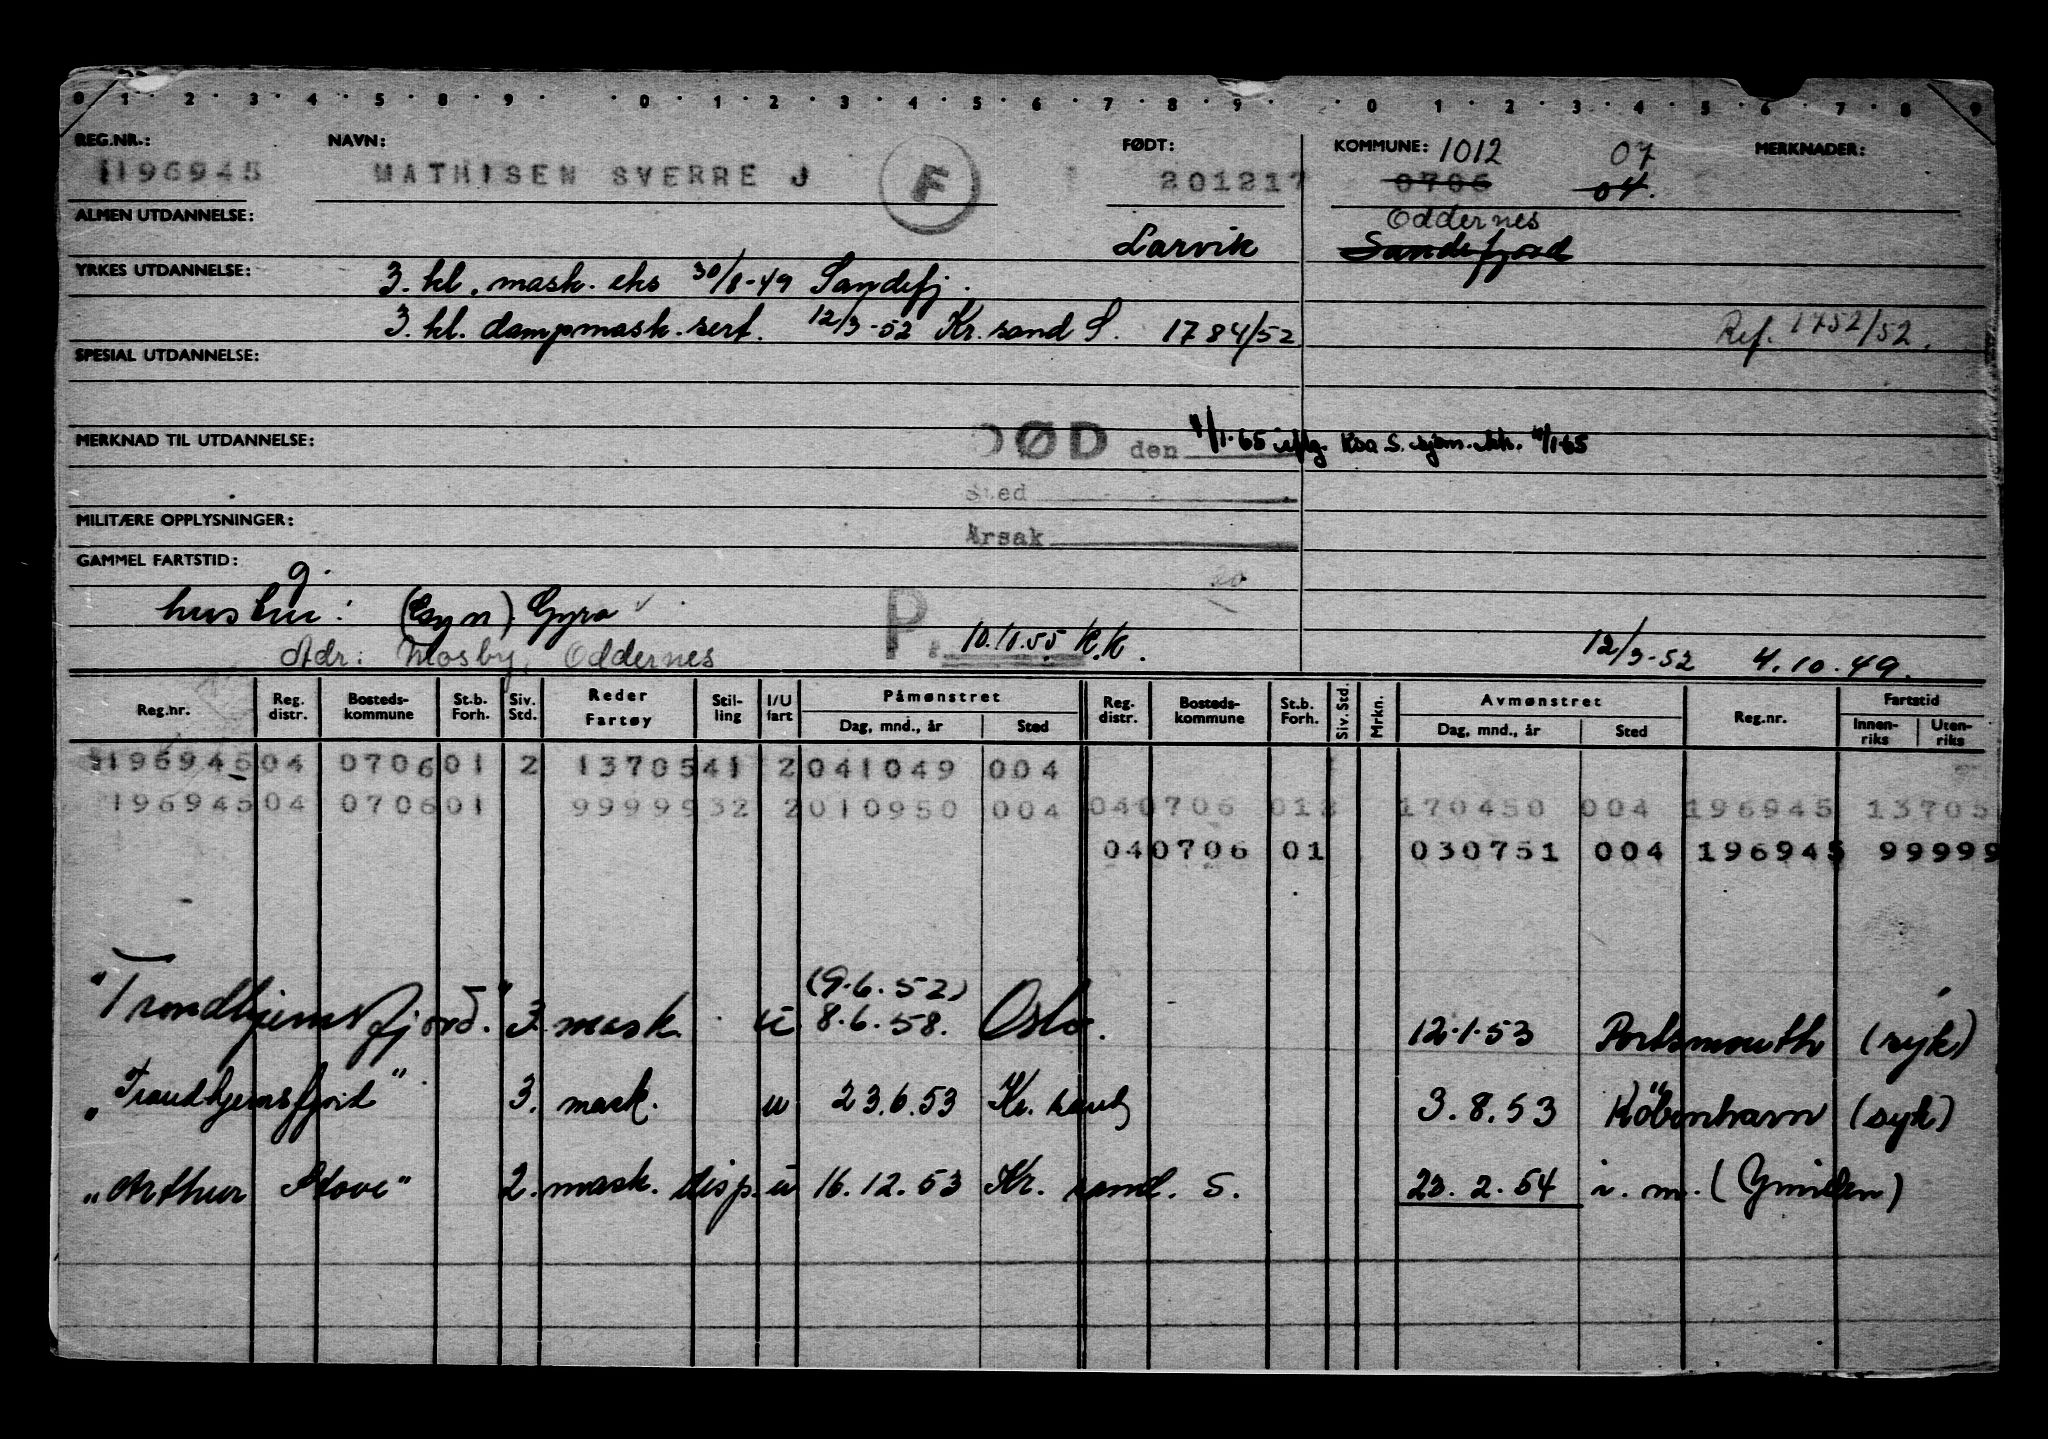 0 1 2 3 4 5 8 9 0 1 2 3 4 5 6 7 8 9 0 1 2 3 4 5 6 7 8 9
REG.NR.: NAVN: FØDT: KOMMUNE: 1012 07 MERKNADER:
196945 MATHISEN SVERRE J F 201217 0706 04.
ALMEN UTDANNELSE: Oddernes
Larvik Sandefjord
YRKES UTDANNELSE: 3. kl. mask. eks 30/8-49 Sandefj.
3. kl. dampmask. sert. 12/3-52 Kr.sand S. 1784/52 Ref. 1752/52.
SPESIAL UTDANNELSE:
MERKNAD TIL UTDANNELSE: DØD den 4/1-65 iflg. Ksa S. sjøm.ktr. 11/1-65
Sted
MILITÆRE OPPLYSNINGER: Årsak
GAMMEL FARTSTID: 9.
hustru: (Esyn) Gyro
Adr: Mosby, Oddernes P. 10.11.55 K.K. 12/3-52 4.10.49.
Reg.nr. Reg. distr. Bosteds-kommune St.b. Forh. Siv. Std. Reder Fartøy Stil-ling I/U fart Påmønstret Dag, mnd., år Sted Reg. distr. Bosteds-kommune St.b. Forh. Siv. Std. Mrkn. Avmønstret Dag, mnd., år Sted Reg.nr. Fartstid Innen-riks Uten-riks
196945 04 0706 01 2 13705 41 2 041049 004
196945 04 0706 01 99999 32 2 010950 004 04 0706 01 2 170450 004 196945 13705
04 0706 01 030751 004 196945 99999
"Trondhjemsfjord." 3. mask. u (9.6.52) 8.6.58. Oslo. 12.1.53 Portsmouth (syk)
"Trondhjemsfjord" 3. mask. u 23.6.53 Kr. sand S 3.8.53 Köbenhavn (syk)
"Arthur Stove" 2. mask. disp. u 16.12.53 Kr. sand. S. 23.2.54 i.m.